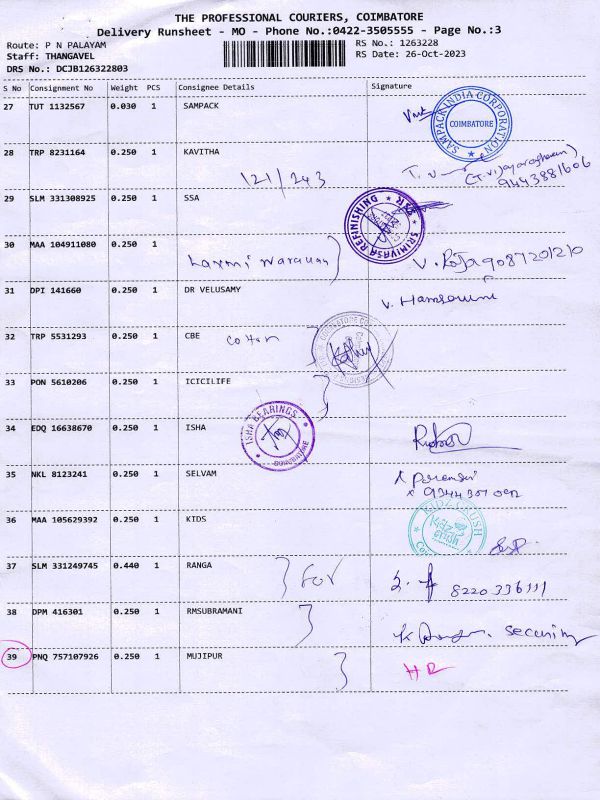 THE PROFESSIONAL COURIERS, COIMBATORE
Delivery Runsheet - MO - Phone No.:0422-3505555 - Page No.:3
Route: P N PALAYAM
Staff: THANGAVEL
DRS No.: DCJB126322803
RS No.: 1263228
RS Date: 26-Oct-2023
S No Consignment No Weight PCS Consignee Details Signature
27 TUT 1132567 0.030 1 SAMPACK
SAMPACK INDIA CORPORATION
COIMBATORE
28 TRP 8231164 0.250 1 KAVITHA
121/243
(T. Vijayaraghavan)
9443881606
29 SLM 331308925 0.250 1 SSA
SRINIVASA REFINISHING
30 MAA 104911080 0.250 1
Laxmi Narayan
V. Roja 9087201210
31 DPI 141660 0.250 1 DR VELUSAMY
32 TRP 5531293 0.250 1 CBE
33 PON 5610206 0.250 1 ICICILIFE
34 EDQ 16638670 0.250 1 ISHA
ISHA BEARINGS
COIMBATORE
35 NKL 8123241 0.250 1 SELVAM
36 MAA 105629392 0.250 1 KIDS
KIDZ CRUSH
37 SLM 331249745 0.440 1 RANGA
for
8220336111
38 DPM 416301 0.250 1 RMSUBRAMANI
security
39 PNQ 757107926 0.250 1 MUJIPUR
HR